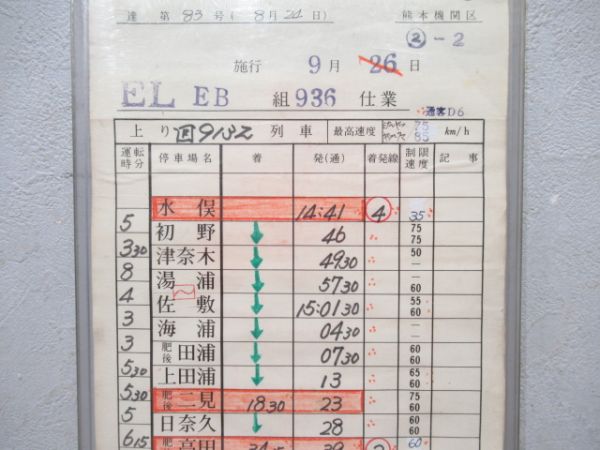 達 第83号(8月24日) 熊本機関区
②-2
施行 9月26日
EL EB 組936 仕業
通客D6
上り 回9132 列車 最高速度 75 85 km/h
運転時分 停車場名 着 発(通) 着発線 制限速度 記事
水俣 14:41 ④ 35
5
初野 ↓ 46 75 75
3 30
津奈木 ↓ 49 30 50 —
8
湯浦 ↓ 57 30 — 60
4
佐敷 ↓ 15:01 30 55 60
3
海浦 ↓ 04 30 — 60
3
肥後田浦 ↓ 07 30 60 60
5 30
上田浦 ↓ 13 65 60
5 30
肥後二見 18 30 23 75 60
5
日奈久 ↓ 28 60
6 15
肥後高田 60